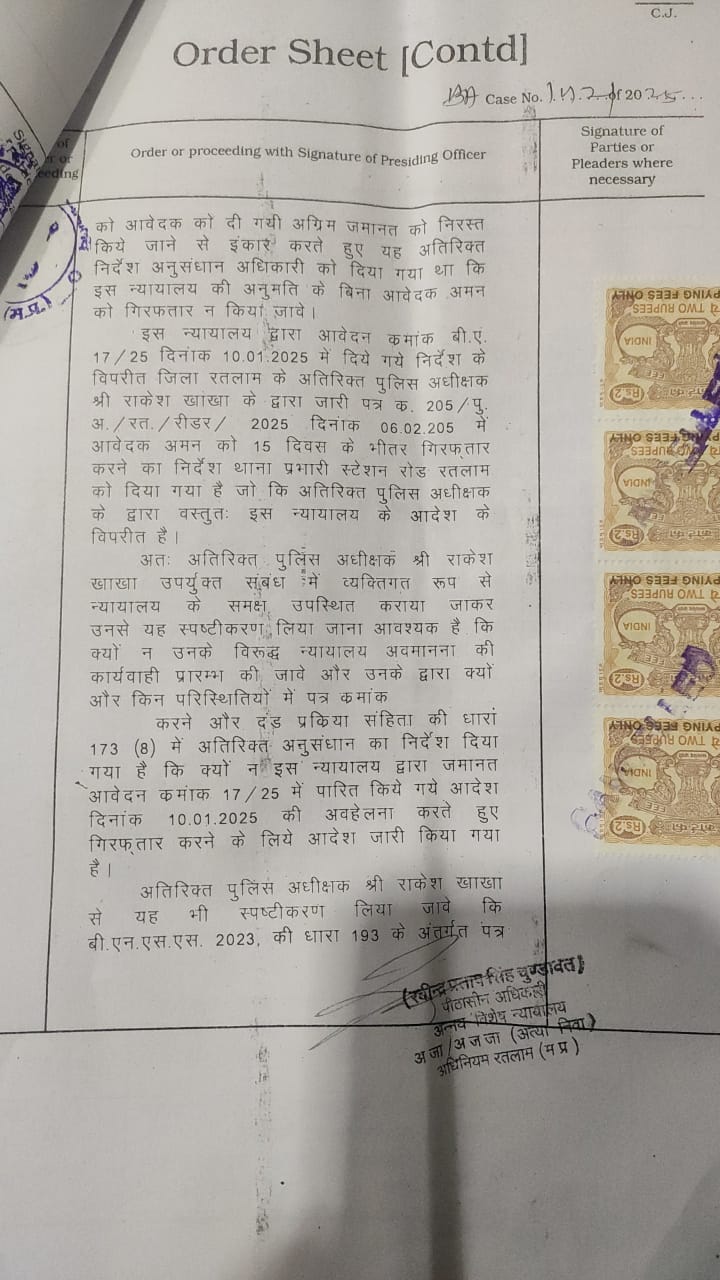 C.J.
Order Sheet [Contd]
BA Case No. of 20 25
of
or or
eeding
Order or proceeding with Signature of Presiding Officer
Signature of
Parties or
Pleaders where
necessary
को आवेदक को दी गयी अग्रिम जमानत को निरस्त
किये जाने से इंकार करते हुए यह अतिरिक्त
निर्देश अनुसंधान अधिकारी को दिया गया था कि
इस न्यायालय की अनुमति के बिना आवेदक अमन
को गिरफ्तार न किया जावे।
इस न्यायालय द्वारा आवेदन कमांक बी.ए.
17/25 दिनांक 10.01.2025 में दिये गये निर्देश के
विपरीत जिला रतलाम के अतिरिक्त पुलिस अधीक्षक
श्री राकेश खाखा के द्वारा जारी पत्र क. 205/पु.
अ./रत./रीडर/ 2025 दिनांक 06.02.205 में
आवेदक अमन को 15 दिवस के भीतर गिरफ्तार
करने का निर्देश थाना प्रभारी स्टेशन रोड रतलाम
को दिया गया है जो कि अतिरिक्त पुलिस अधीक्षक
के द्वारा वस्तुतः इस न्यायालय के आदेश के
विपरीत है।
अतः अतिरिक्त पुलिस अधीक्षक श्री राकेश
खाखा उपर्युक्त संबंध में व्यक्तिगत रूप से
न्यायालय के समक्ष उपस्थित कराया जाकर
उनसे यह स्पष्टीकरण लिया जाना आवश्यक है कि
क्यों न उनके विरूद्ध न्यायालय अवमानना की
कार्यवाही प्रारम्भ की जावे और उनके द्वारा क्यों
और किन परिस्थितियों में पत्र कमांक
करने और दंड प्रकिया संहिता की धारा
173 (8) में अतिरिक्त अनुसंधान का निर्देश दिया
गया है कि क्यों न इस न्यायालय द्वारा जमानत
आवेदन कमांक 17/25 में पारित किये गये आदेश
दिनांक 10.01.2025 की अवहेलना करते हुए
गिरफ्तार करने के लिये आदेश जारी किया गया
है।
अतिरिक्त पुलिस अधीक्षक श्री राकेश खाखा
से यह भी स्पष्टीकरण लिया जावे कि
बी.एन.एस.एस. 2023, की धारा 193 के अंतर्गत पत्र
(रवीन्द्र प्रताप सिंह चुण्डावत)
पीठासीन अधिकारी
अनन्य विशेष न्यायालय
अ जा/अ ज जा (अत्या निवा)
अधिनियम रतलाम (म प्र)
(म.प्र.)
COPYING FEES ONLY
TWO RUPEES
INDIA
Rs.2
COPYING FEES ONLY
TWO RUPEES
INDIA
Rs.2
COPYING FEES ONLY
TWO RUPEES
INDIA
Rs.2
COPYING FEES ONLY
TWO RUPEES
INDIA
Rs.2